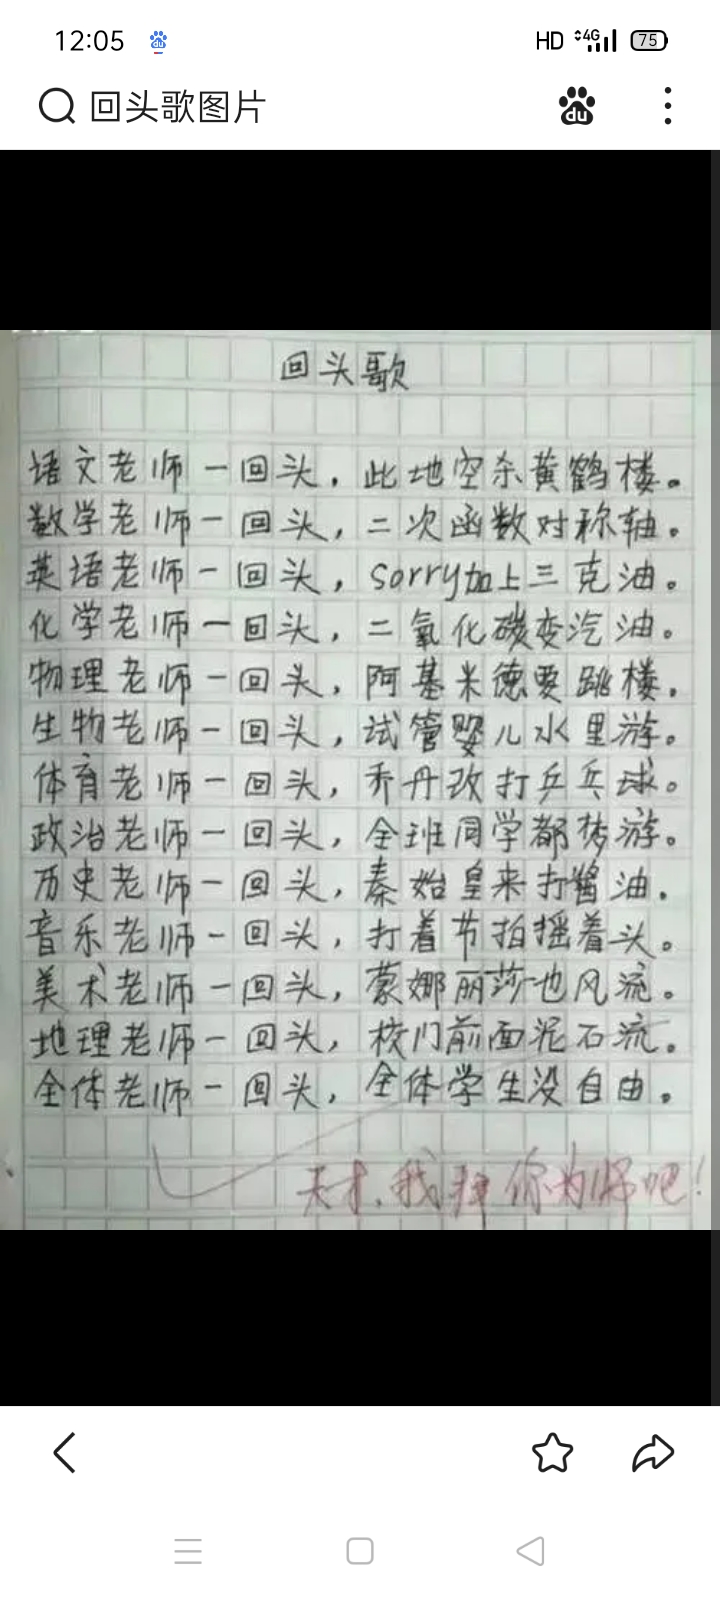 12:05
HD 4G 75
回头歌图片
du
回头歌
语文老师一回头，此地空余黄鹤楼。
数学老师一回头，二次函数对称轴。
英语老师一回头，sorry加上三克油。
化学老师一回头，二氧化碳变汽油。
物理老师一回头，阿基米德要跳楼。
生物老师一回头，试管婴儿水里游。
体育老师一回头，乔丹改打乒乓球。
政治老师一回头，全班同学都梦游。
历史老师一回头，秦始皇来打酱油.
音乐老师一回头，打着节拍摇着头。
美术老师一回头，蒙娜丽莎也风流。
地理老师一回头，校门前面泥石流。
全体老师一回头，全体学生没自由。
天才，我拜你为师吧！